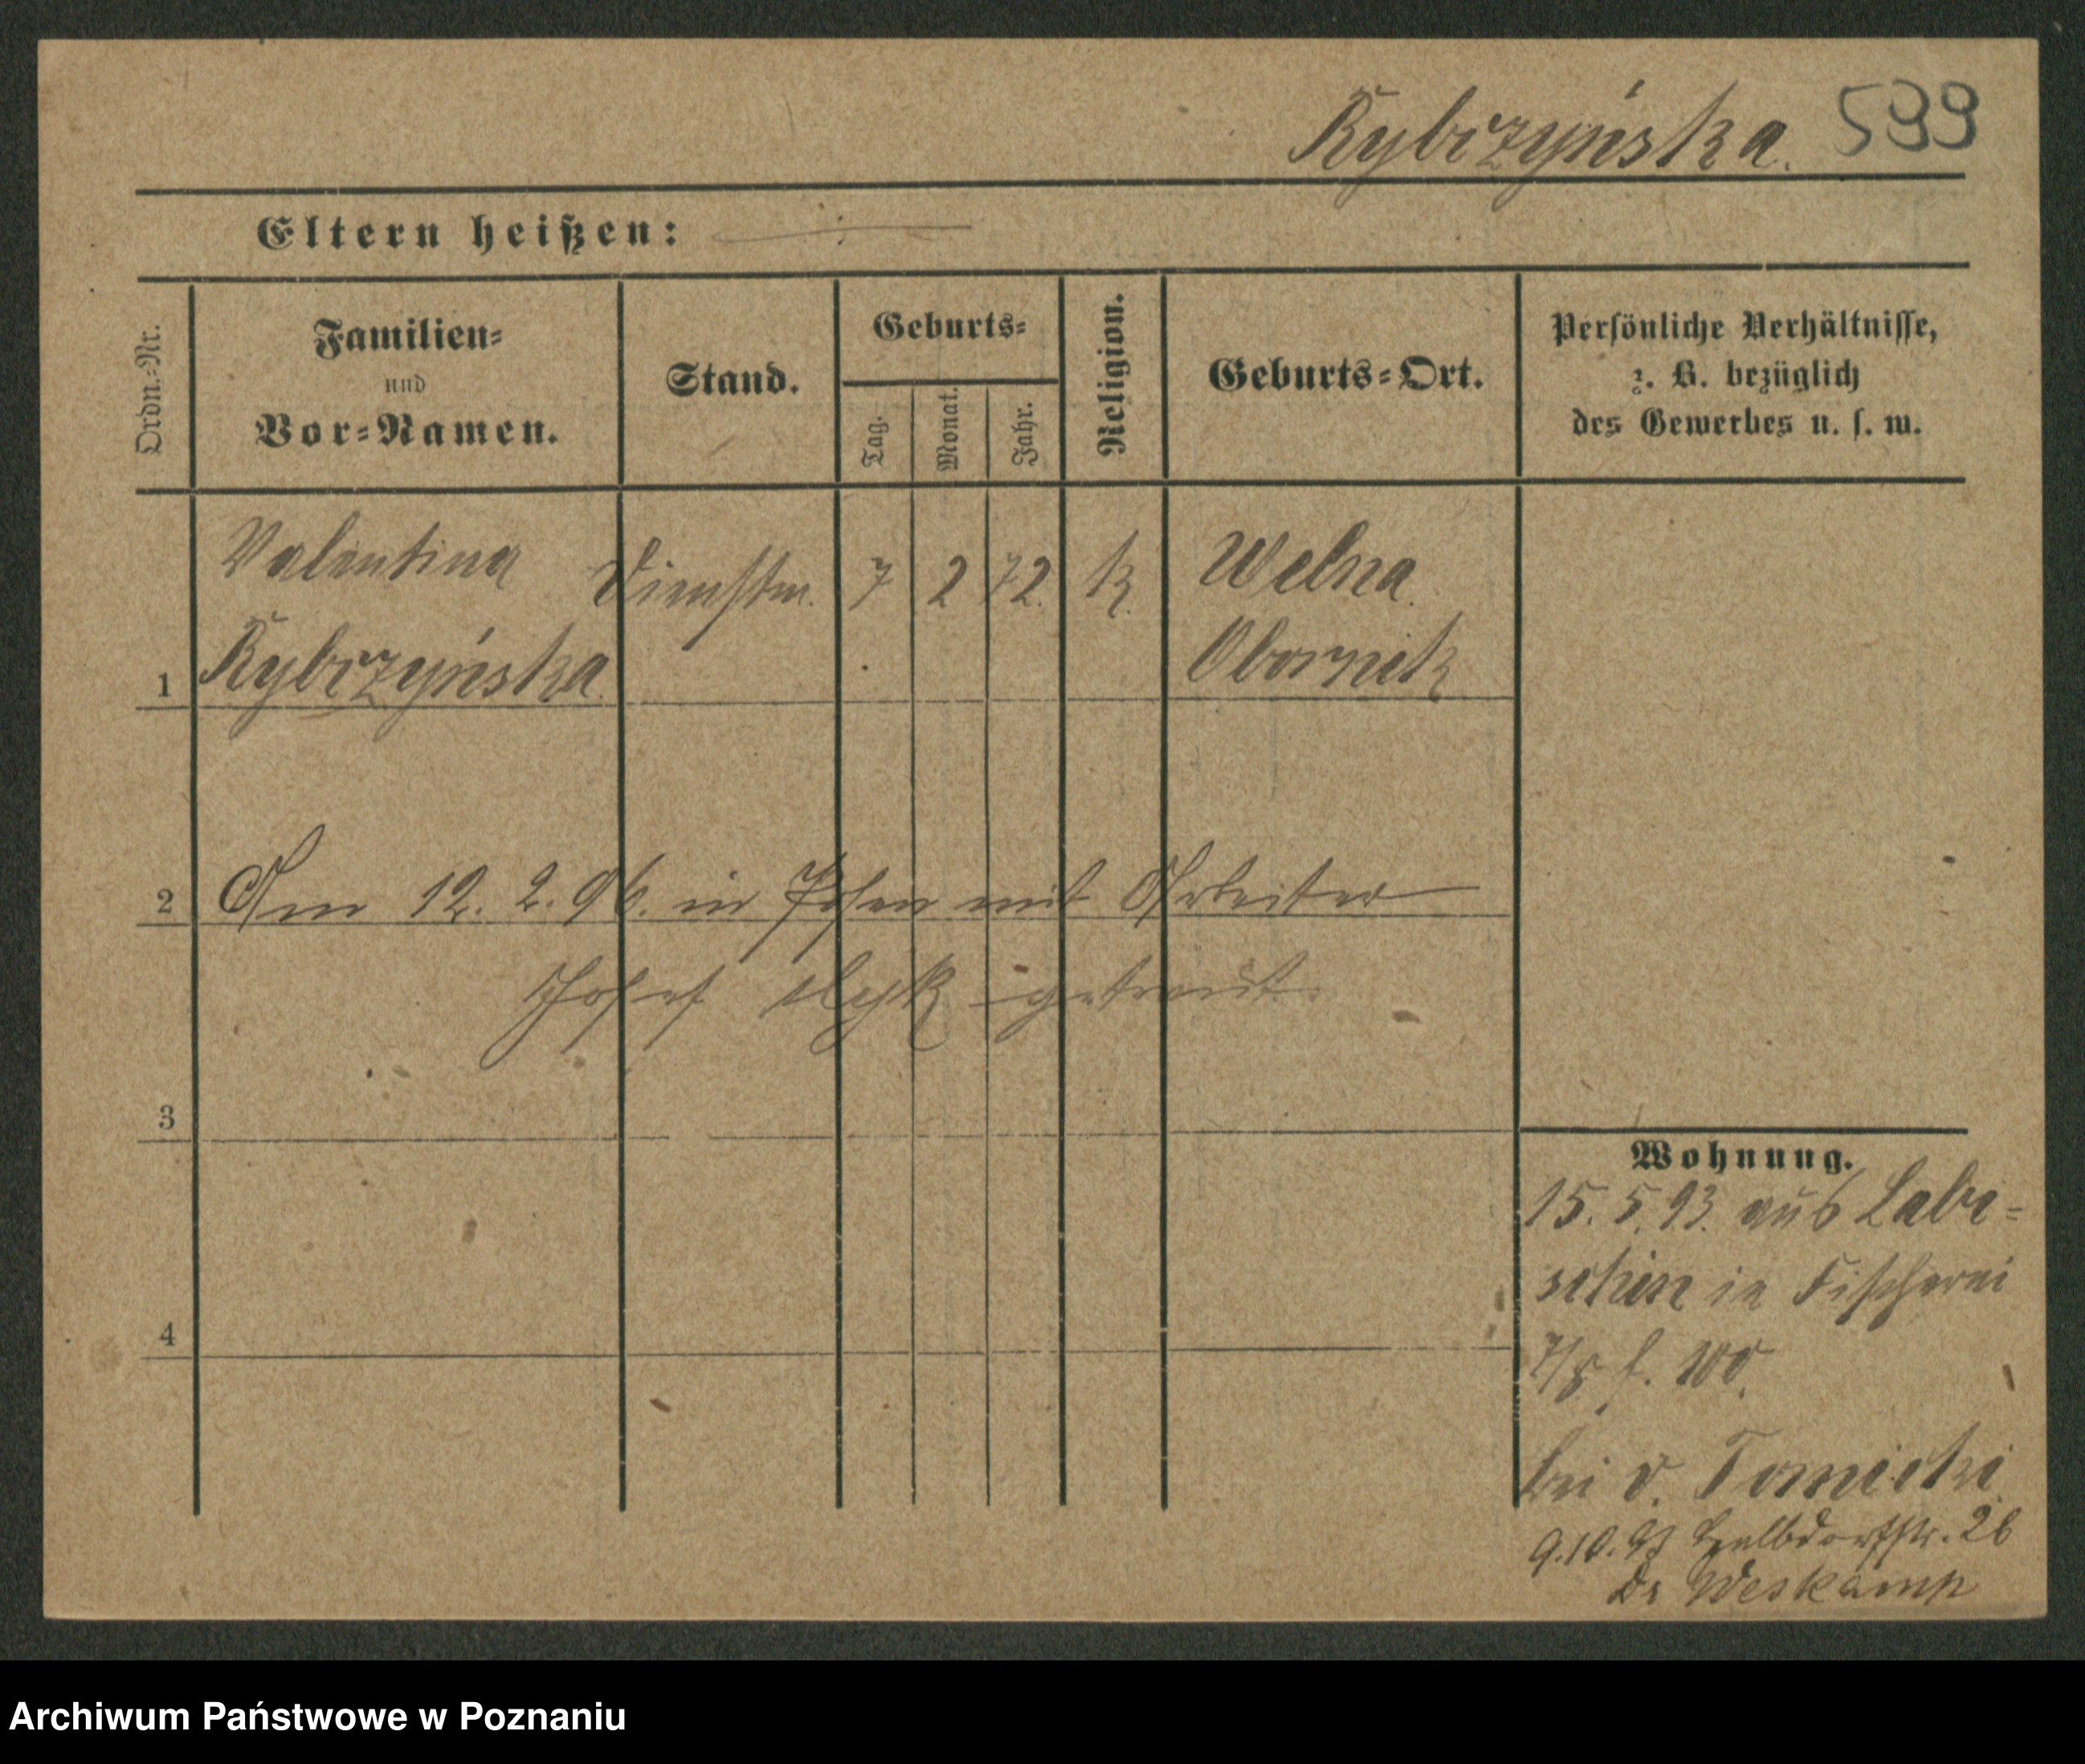 Rybczyńska. 599
Eltern heißen:
Ordn.-Nr.
Familien-
und
Vor-Namen.
Stand.
Geburts-
Tag.
Monat.
Jahr.
Religion.
Geburts-Ort.
Persönliche Verhältnisse,
z. B. bezüglich
des Gewerbes u. s. w.
Valentina Dienstm. 7 2 72. k. Welna
1 Rybczyńska Obornik
2 Am 12. 2. 96. in Posen mit Arbeiter
Josef getraut
3
4
Wohnung.
15. 5. 93. aus Labi-
schin in Fischerei
7/8
bei v. Tomicki
9.10. Halbdorfstr. 26
Dr Weskamp
Archiwum Państwowe w Poznaniu